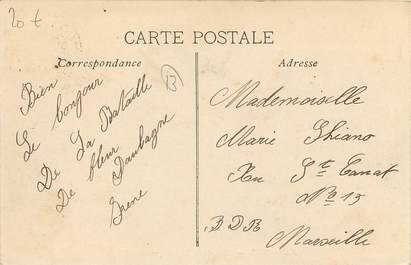 20 €
CARTE POSTALE
Correspondance
Adresse
Bien
Le bonjour
De La Bataille
De fleur Daubagne
Irene
B
Mademoiselle
Marie Ghiano
Rue Ste
No 15
B D R
Marseille